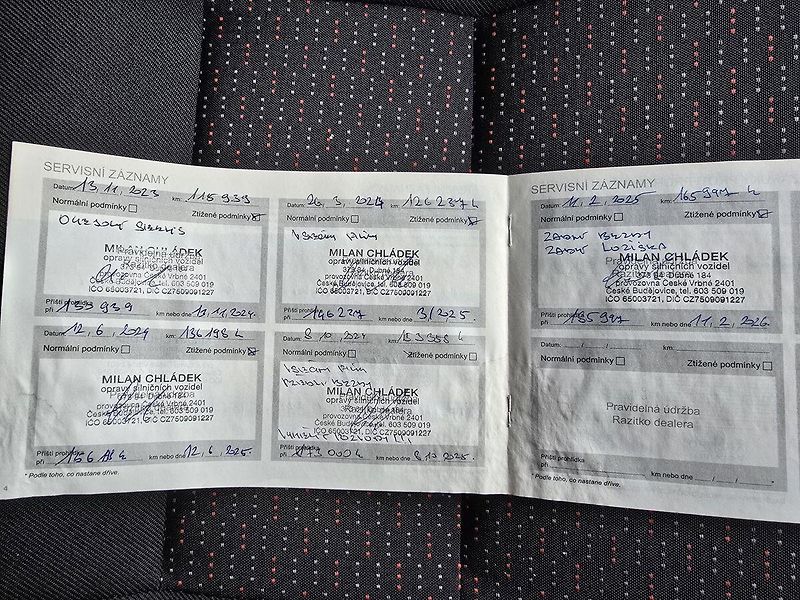 SERVISNÍ ZÁZNAMY
Datum: 13. 11. 2023 km: 115 939
Normální podmínky Ztížené podmínky
MILAN CHLÁDEK
opravy silničních vozidel
373 84 Dubné 184
provozovna České Vrbné 2401
České Budějovice, tel. 603 509 019
IČO 65003721, DIČ CZ7509091227
Příští prohlídka
při 135 939 km nebo dne 13. 11. 2024.
Datum: 26. 3. 2024 km: 126 237 k
Normální podmínky Ztížené podmínky
MILAN CHLÁDEK
opravy silničních vozidel
373 84 Dubné 184
provozovna České Vrbné 2401
České Budějovice, tel. 603 509 019
IČO 65003721, DIČ CZ7509091227
Příští prohlídka
při 146 237 km nebo dne 3/2025.
Datum: 12. 6. 2024 km: 136 198 k
Normální podmínky Ztížené podmínky
MILAN CHLÁDEK
opravy silničních vozidel
373 84 Dubné 184
provozovna České Vrbné 2401
České Budějovice, tel. 603 509 019
IČO 65003721, DIČ CZ7509091227
Příští prohlídka
při km nebo dne 12. 6. 2025.
Datum: 8. 10. 2024 km:
Normální podmínky Ztížené podmínky
MILAN CHLÁDEK
opravy silničních vozidel
373 84 Dubné 184
provozovna České Vrbné 2401
České Budějovice, tel. 603 509 019
IČO 65003721, DIČ CZ7509091227
Příští prohlídka
při km nebo dne 8. 10. 2025.
* Podle toho, co nastane dříve.
4
SERVISNÍ ZÁZNAMY
Datum: 11. 2. 2025 km: 165 997 k
Normální podmínky Ztížené podmínky
ZADNÍ BRZDY
ZADNÍ LOŽISKA
MILAN CHLÁDEK
opravy silničních vozidel
373 84 Dubné 184
provozovna České Vrbné 2401
České Budějovice, tel. 603 509 019
IČO 65003721, DIČ CZ7509091227
Příští prohlídka
při 185 997 km nebo dne 11. 2. 2026.
Datum: km:
Normální podmínky Ztížené podmínky
Pravidelná údržba
Razítko dealera
Příští prohlídka
při km nebo dne
* Podle toho, co nastane dříve.